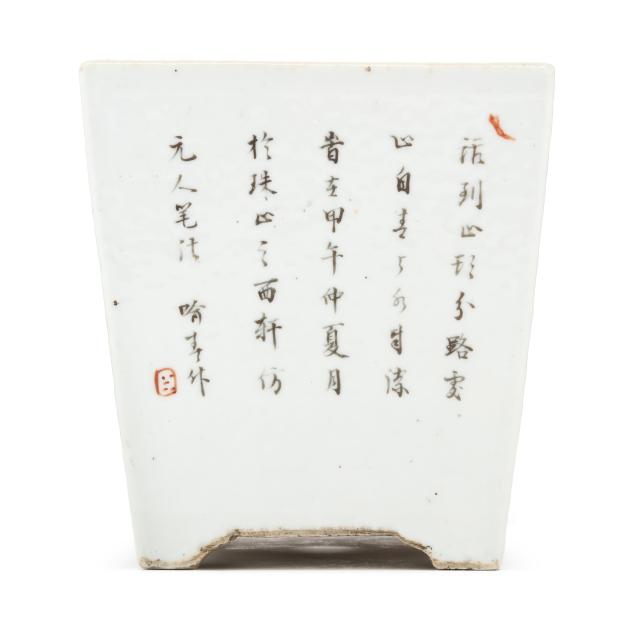 活到山形分路處
山自青々水自流
旹在甲午仲夏月
於珠山之西軒仿
元人笔法 喻春作